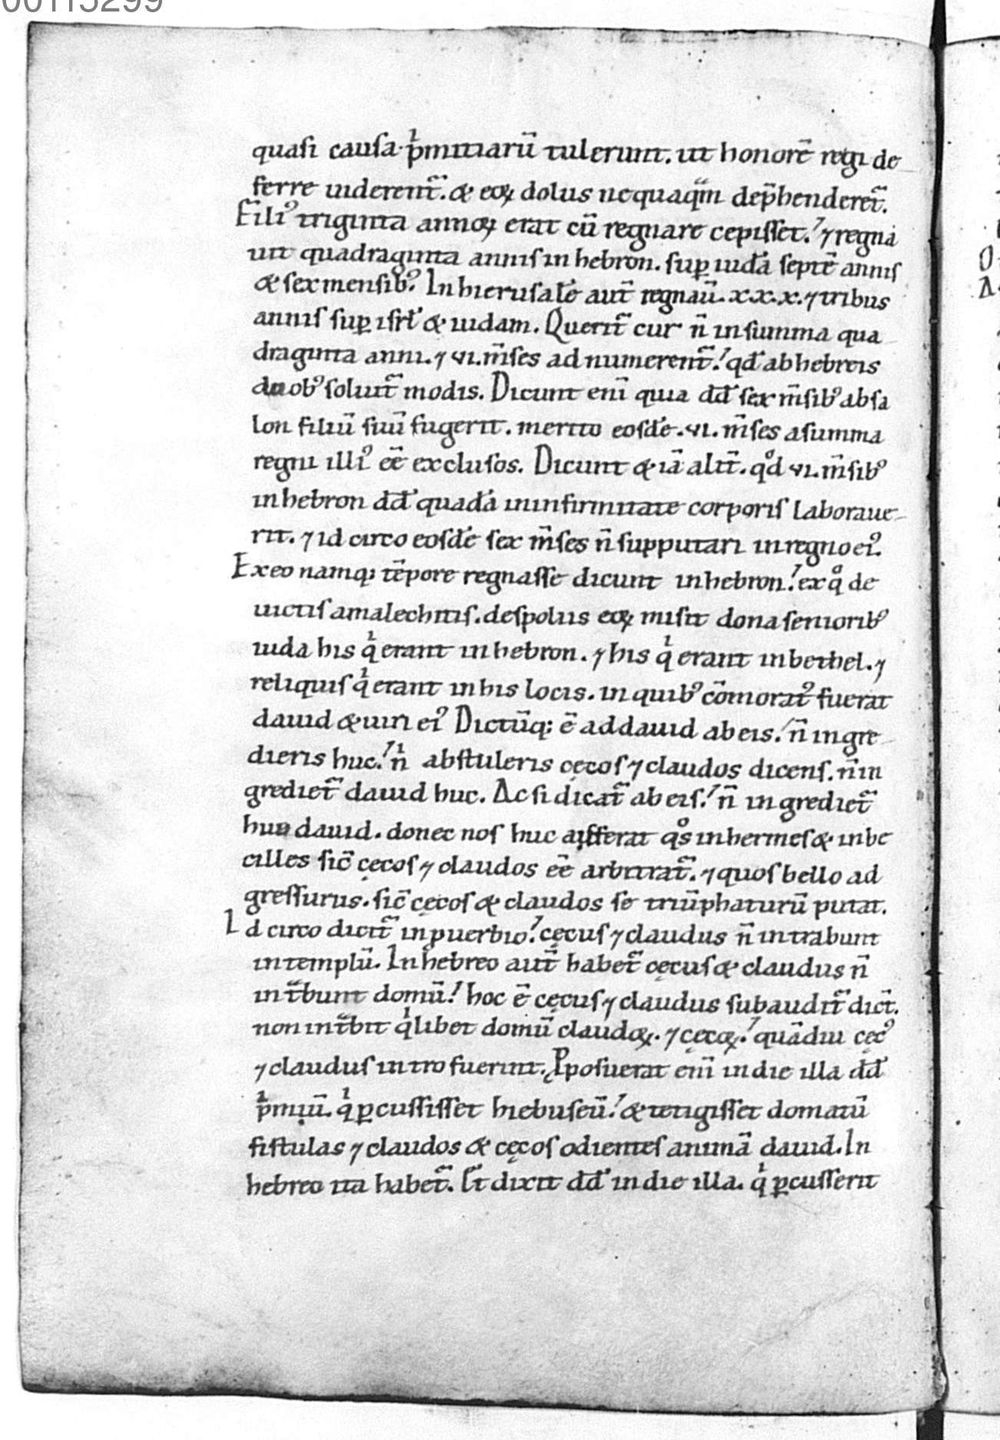 00115299
quasi causa pͥmitiarū tulerunt. ut honorē regi de-
ferre uiderent̄. & eoꝝ dolus nequaqᷓm dep̄henderet̄.
Filiꝰ triginta annoꝝ erat cū regnare cepisset. ⁊ regna
uit quadraginta annis in hebron. suꝑ iudā septē annis
& sex mensibꝰ. In hierusalē aut̄ regnauͥ. x.x.x. ⁊ tribus
annis suꝑ isrl̄ & iudam. Querit̄ cur n̄ in summa qua
draginta anni. ⁊ vi. m̄ses adnumerent̄. qd̄ ab hebreis
duobꝰ soluit̄ modis. Dicunt enī quia dd̄ sex m̄sibꝰ absa
lon filiū suū fugerit. merito eosdē .vi. m̄ses a summa
regni illiꝰ eē exclusos. Dicunt & iā alit̄. qͦd vi. m̄sibꝰ
in hebron dd̄ quadā in infirmitate corporis laboraue-
rit. ⁊ id circo eosdē sex m̄ses n̄ supputari in regno eiꝰ.
Ex eo namq; tēpore regnasse dicunt in hebron. ex qͦ de
uictis amalechitis. de spoliis eoꝝ misit dona senioribꝰ
iuda his qͥ erant in hebron. ⁊ his qͥ erant in bethel. ⁊
reliquis qͥ erant in his locis. in quibꝰ cōmoratꝰ fuerat
dauid & uiri eiꝰ Dictūq; ē ad dauid ab eis. n̄ ingre-
dieris huc. nͥ abstuleris cęcos ⁊ claudos dicens. n̄ in
grediet̄ dauid huc. Ac si dicat̄ ab eis. n̄ ingrediet̄
huc dauid. donec nos huc aufferat qͦs inhermes & inbe
cilles sic̄ cęcos ⁊ claudos eē arbitrat̄. ⁊ quos bello ad
gressurus. sic̄ cęcos & claudos se triūphaturū putat.
Id circo dicit̄ in ꝓuerbio. cęcus ⁊ claudus n̄ intrabunt
in templū. In hebreo aut̄ habet̄ cęcus & claudus n̄
int̄bunt domū. hoc ē cęcus ⁊ claudus subaudit̄ dict̄.
non int̄bit qͥlibet domū claudoꝝ. ⁊ cęcoꝝ. quādiu cęcꝰ
⁊ claudus intro fuerint. Pposuerat enī in die illa dd̄
pͥmiū. qͥ ꝑcussisset hiebuseū. & tetigisset domatū
fistulas ⁊ claudos & cęcos odientes animā dauid. In
hebreo ita habet̄. Et dixit dd̄ in die illa. qͥ ꝑcusserit